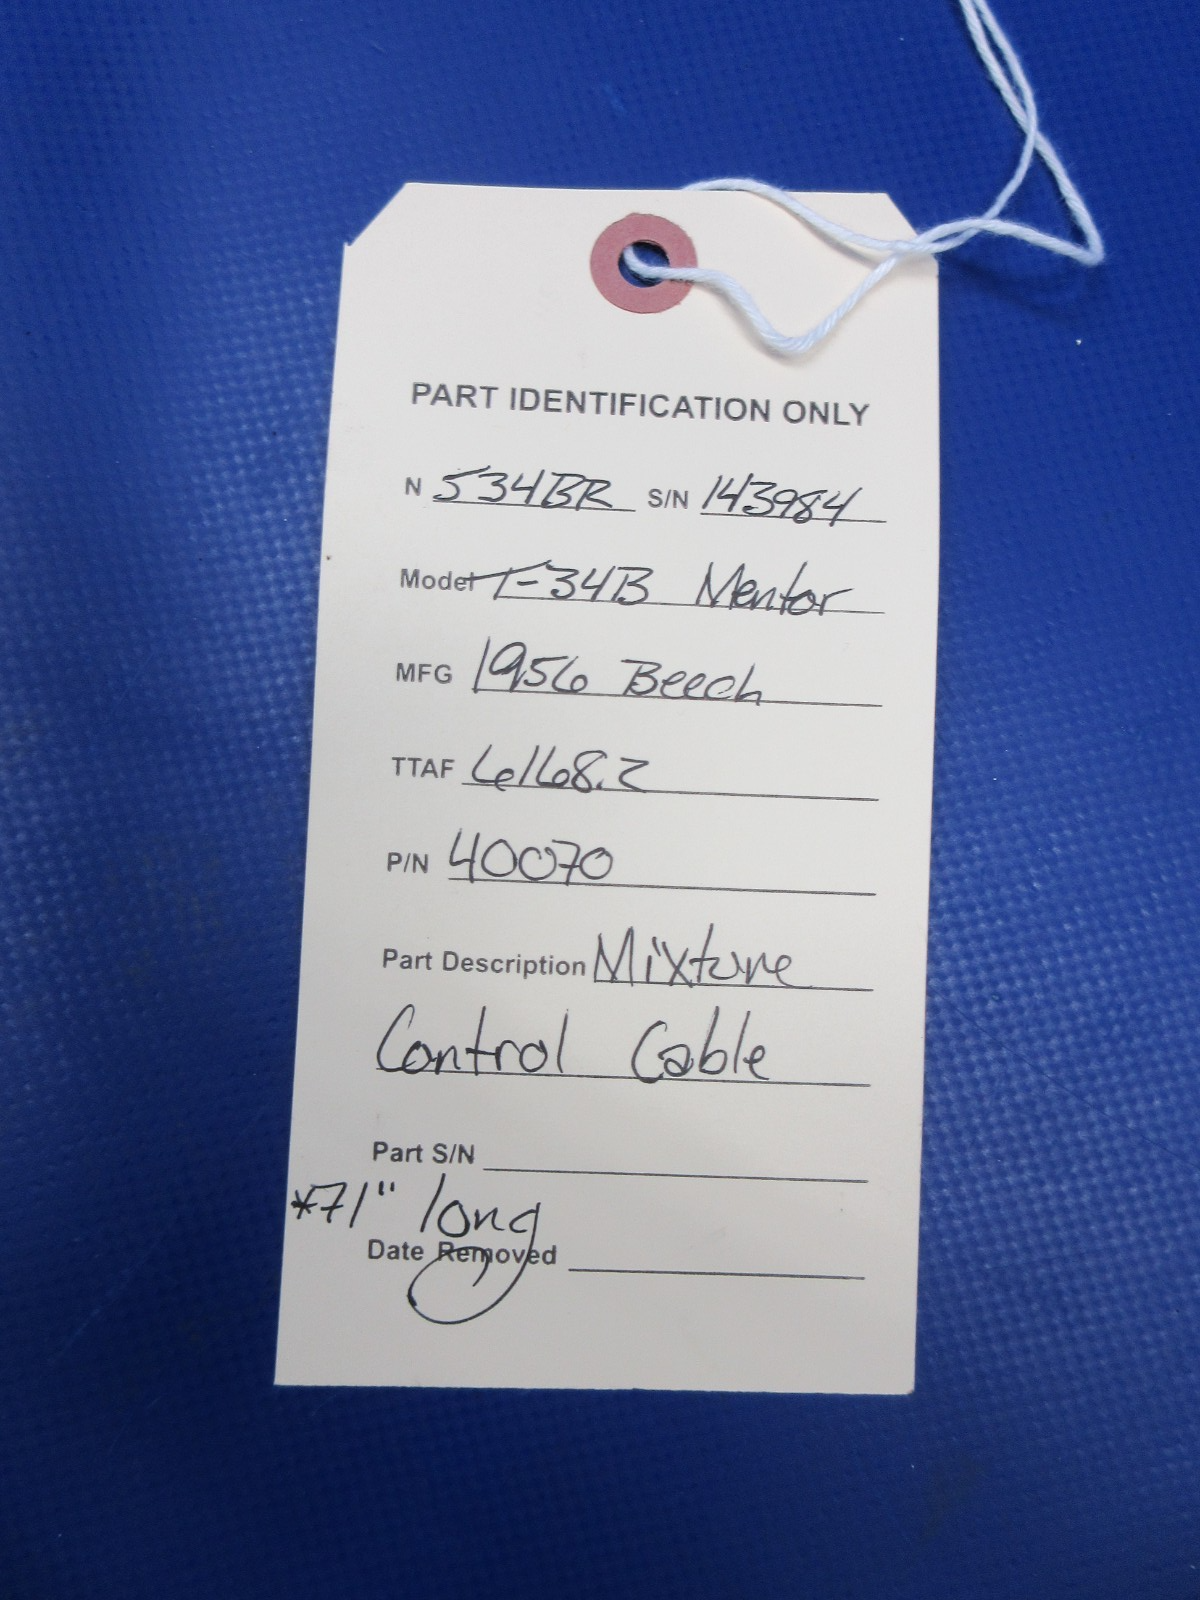 PART IDENTIFICATION ONLY
N 534BR S/N 143984
Model T-34B Mentor
MFG 1956 Beech
TTAF 6168.2
P/N 40070
Part Description Mixture
Control Cable
Part S/N
*71" long
Date Removed